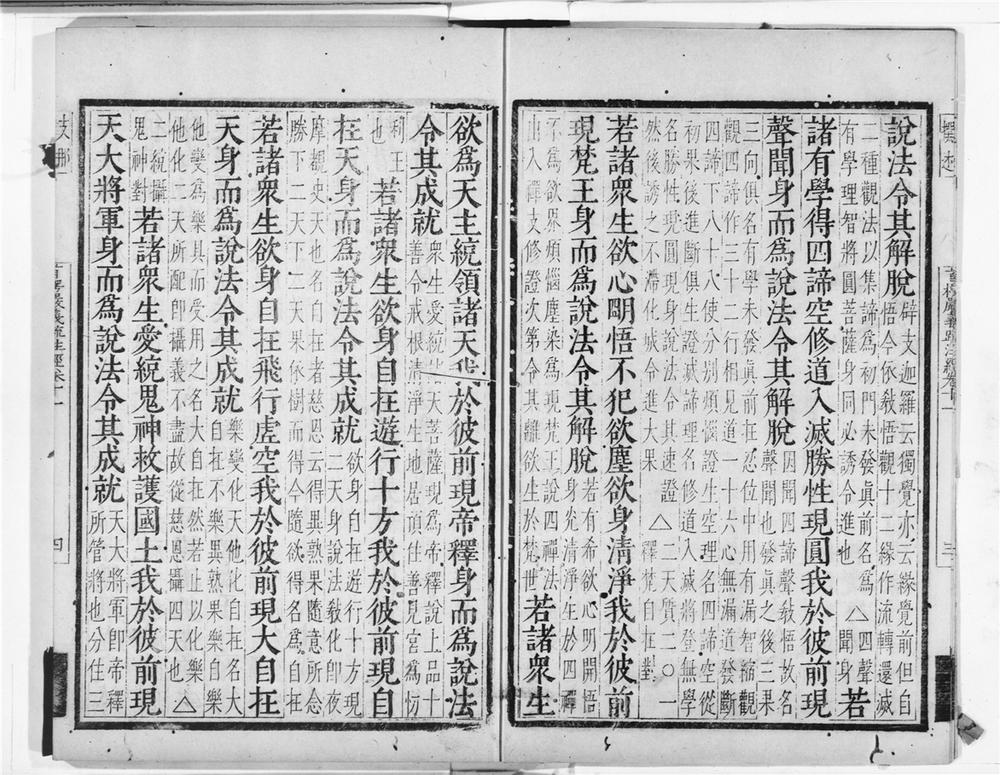 說法令其解脫
辟支迦羅云獨覺亦云緣覺前但自
悟今依教悟觀十二緣作流轉還滅
二種觀法以集諦為初門未發真前名為
有學理智將圓菩薩身同必誘令進也
△四聲
聞身
若
諸有學得四諦空修道入滅勝性現圓我於彼前現
聲聞身而為說法令其解脫
因聞四諦聲教悟故名
聲聞也發真之後三果
三向俱名有學未發真前在忍位中用有漏智縮觀
觀四諦作三十二行相見道一十六心無漏道發斷
四諦下八十八使分別煩惱證生空理名四諦空從
初果後進斷俱生惑證滅諦理名修道入滅將登無學
名勝性現圓現身說法令其速證
然後誘之不滯化城令進大果
△二天質二〇一
釋梵自在對
若諸眾生欲心明悟不犯欲塵欲身清淨我於彼前
現梵王身而為說法令其解脫
若有希欲心明開悟
身光清淨生於四禪
不為欲界煩惱塵染為現梵王說四禪法
出入禪支修證次第令其離欲生於梵世
若諸眾生
三
欲為天主統領諸天我於彼前現帝釋身而為說法
令其成就
眾生愛統諸天菩薩現為帝釋說上品十
善令戒根清淨生地居頂住善見宮為忉
利王
也
若諸眾生欲身自在遊行十方我於彼前現自
在天身而為說法令其成就
欲身自在遊行十方現
二天身說法教化即夜
摩覩史天也名自在者慈恩云得異熟果隨意所念
勝下二天下二天果依樹而得今隨欲得名為自在
若諸眾生欲身自在飛行虛空我於彼前現大自在
天身而為說法令其成就
樂變化天他化自在名大
自在不樂異熟果樂自樂
他變為樂具而受用之名大自在然若止以化樂
他化二天所配即攝義不盡故從慈恩攝四天也
△
二統攝
鬼神對
若諸眾生愛統鬼神救護國土我於彼前現
天大將軍身而為說法令其成就
天大將軍即帝釋
所管將也分住三
支那
四